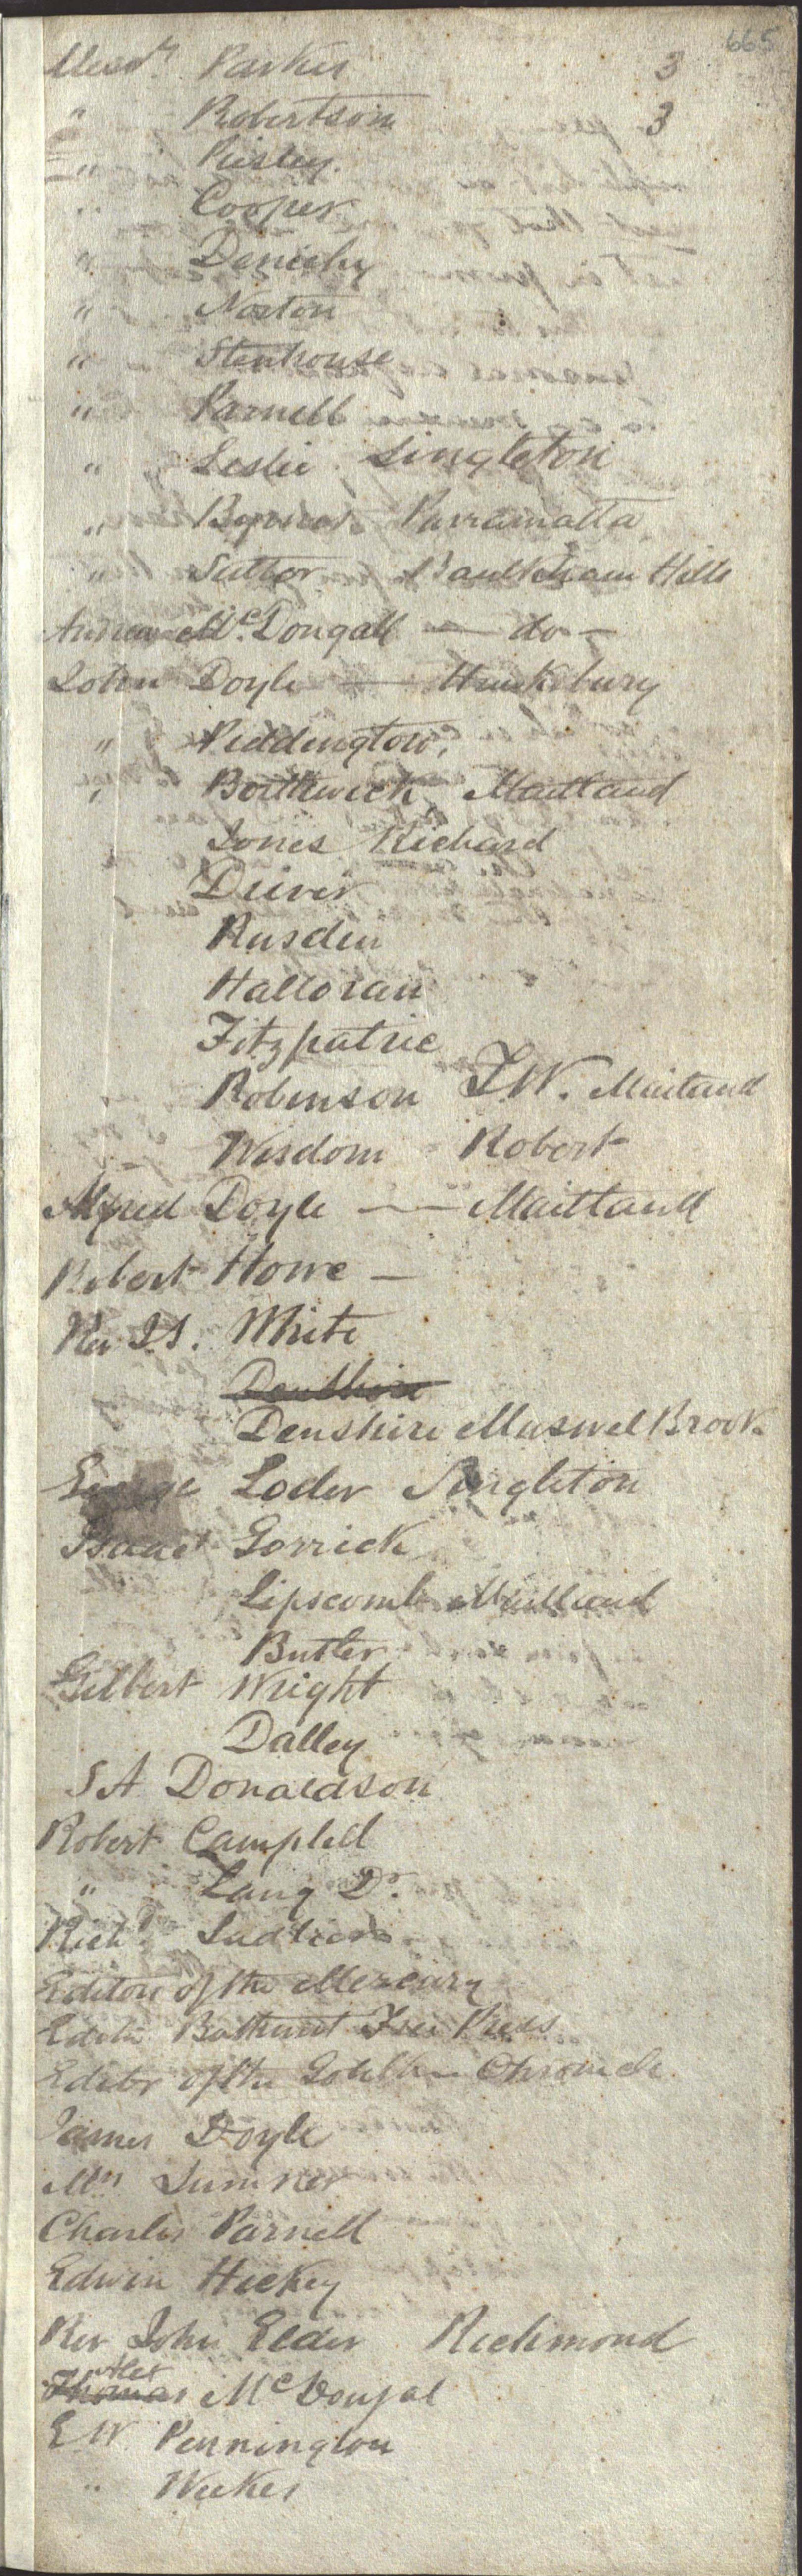 665
Messrs Parkes 3
" Robertson 3
" Piesley
" Cooper
" Deniehy
" Norton
" Stenhouse
" Parnell
" Leslie Singleton
" Byrnes Parramatta
" Suttor Baulkham Hills
Andrew McDougall — do —
John Doyle — Hawksbury
" Piddington
" Bothwick Maitland
Jones Richard
Driver
Rusden
Halloran
Fitzpatric
Robinson I.W. Maitland
Wisdom Robert
Alfred Doyle — Maitland
Robert Howe —
Rev J.S. White
Denshire
Denshire Muswel Brook
George Loder Singleton
Isaac Gorrick
Lipscomb Maitland
Butler
Gilbert Wright
Dalley
S A Donaldson
Robert Campbell
" Lang Dr.
Richd Sadleir
Editor of the Mercury
Editor Bathurst Free Press
Editor of the Goulburn Chronicle
James Doyle
Mrs Sumner
Charles Parnell
Edwin Hickey
Rev John Elder Richmond
Alex
Thomas McDougal
E W Pennington
" Weekes